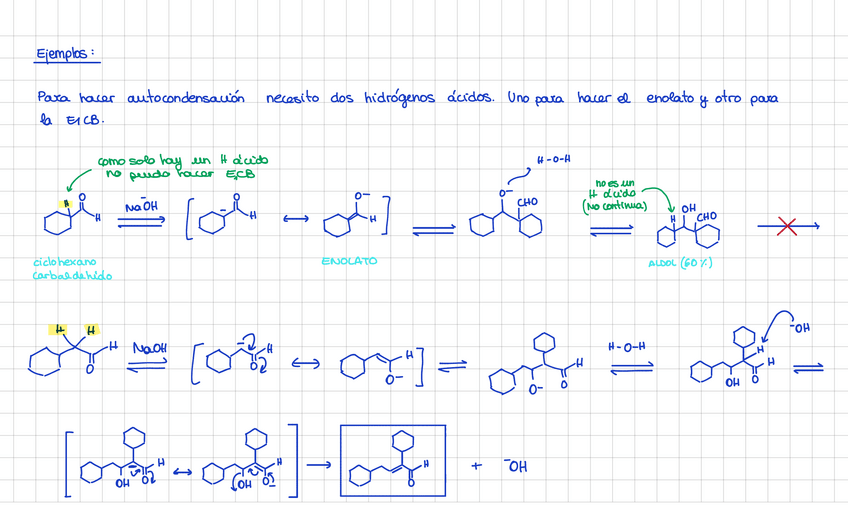 Ejemplos:
Para hacer autocondensación necesito dos hidrógenos ácidos. Uno para hacer el enolato y otro para
la E1CB.
como solo hay un H ácido
no puedo hacer E1CB
H
O
H
NaOH
O
H
O-
H
O-
CHO
H-O-H
no es un
H ácido
(no continua)
H
OH
CHO
ciclohexano
carbaldehído
ENOLATO
ALDOL (60%)
H H
H
O
NaOH
-
H
O
H
O-
O-
O
H
H-O-H
H
H
OH
O
-OH
H
OH
O
H
OH
O-
H
O
+ -OH